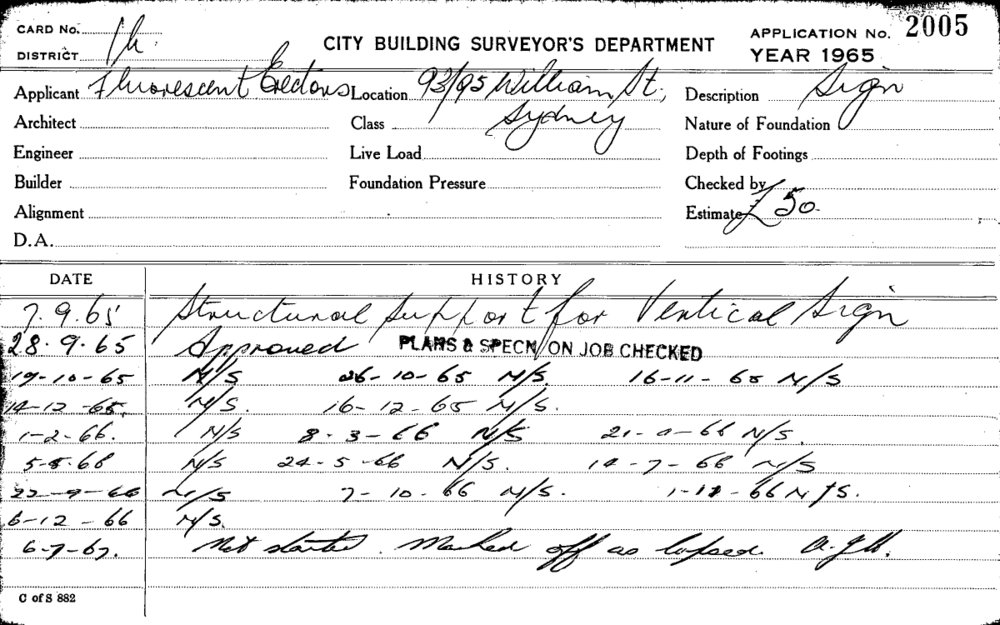 CARD No.
DISTRICT
CITY BUILDING SURVEYOR'S DEPARTMENT
APPLICATION No. 2005
YEAR 1965
Applicant Fluorescent Erectors Location 93/95 William St., Description Sign
Architect Class Sydney Nature of Foundation
Engineer Live Load Depth of Footings
Builder Foundation Pressure Checked by
Alignment Estimate £50-
D.A.
DATE HISTORY
7.9.65 Structural support for Vertical Sign
28.9.65 Approved PLANS & SPECN/ON JOB CHECKED
19-10-65 N/S 26-10-65 N/S. 16-11-65 N/S
14-12-65. N/S. 16-12-65 N/S.
1-2-66. N/S 8-3-66 N/S 66 N/S.
N/S 24-5-66 N/S. 14-7-66 N/S
22-9-66 N/S 7-10-66 N/S. 66 N/S.
6-12-66 N/S.
6-7-67. Not started. Marked off as lapsed.
C of S 882